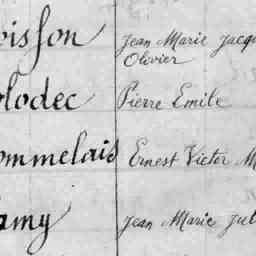 oisson Jean Marie Jacqu
Olivier
olodec Pierre Emile
ommelais Ernest Victor M
amy Jean Marie Jul